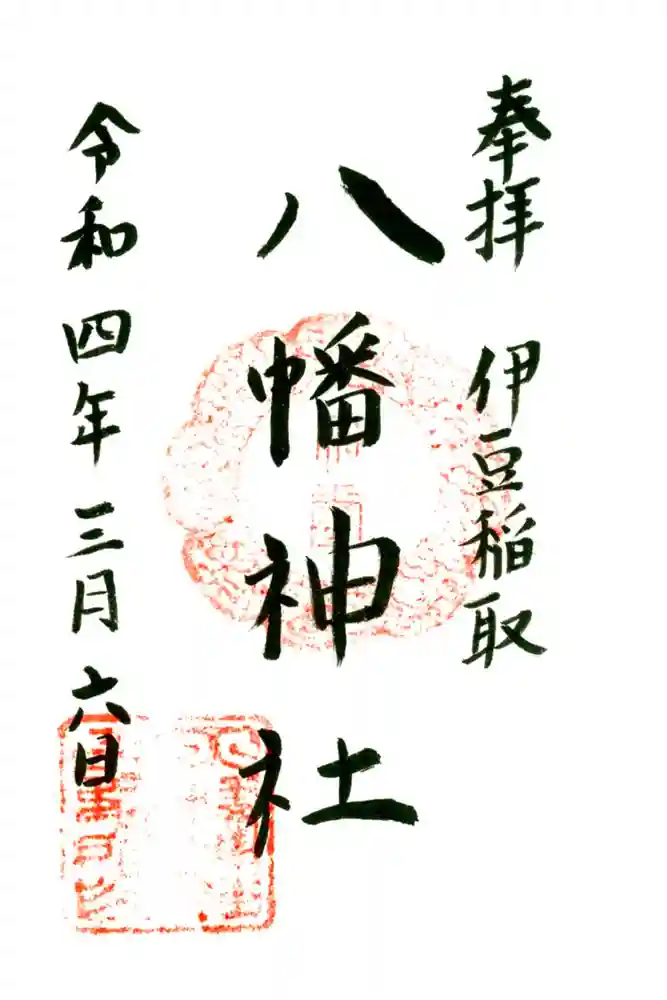 奉拝 伊豆稲取
八幡神社
令和四年三月六日